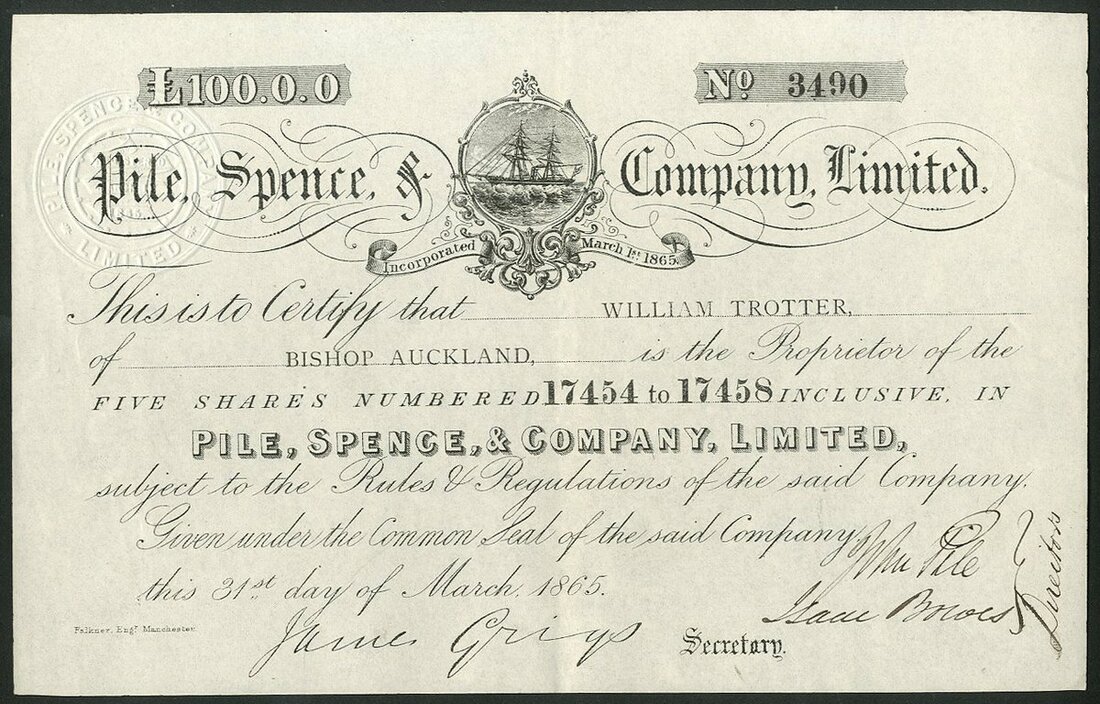 £100.0.0
No 3490
PILE, SPENCE & COMPANY LIMITED
Pile, Spence, & Company, Limited.
Incorporated March 1st 1865.
This is to Certify that WILLIAM TROTTER,
of BISHOP AUCKLAND, is the Proprietor of the
FIVE SHARES NUMBERED 17454 to 17458 INCLUSIVE, IN
PILE, SPENCE, & COMPANY, LIMITED,
subject to the Rules & Regulations of the said Company.
Given under the Common Seal of the said Company
this 31st day of March, 1865.
John Pile
Isaac Bowes
Directors
Falkner, Engr. Manchester.
James Grigs Secretary.